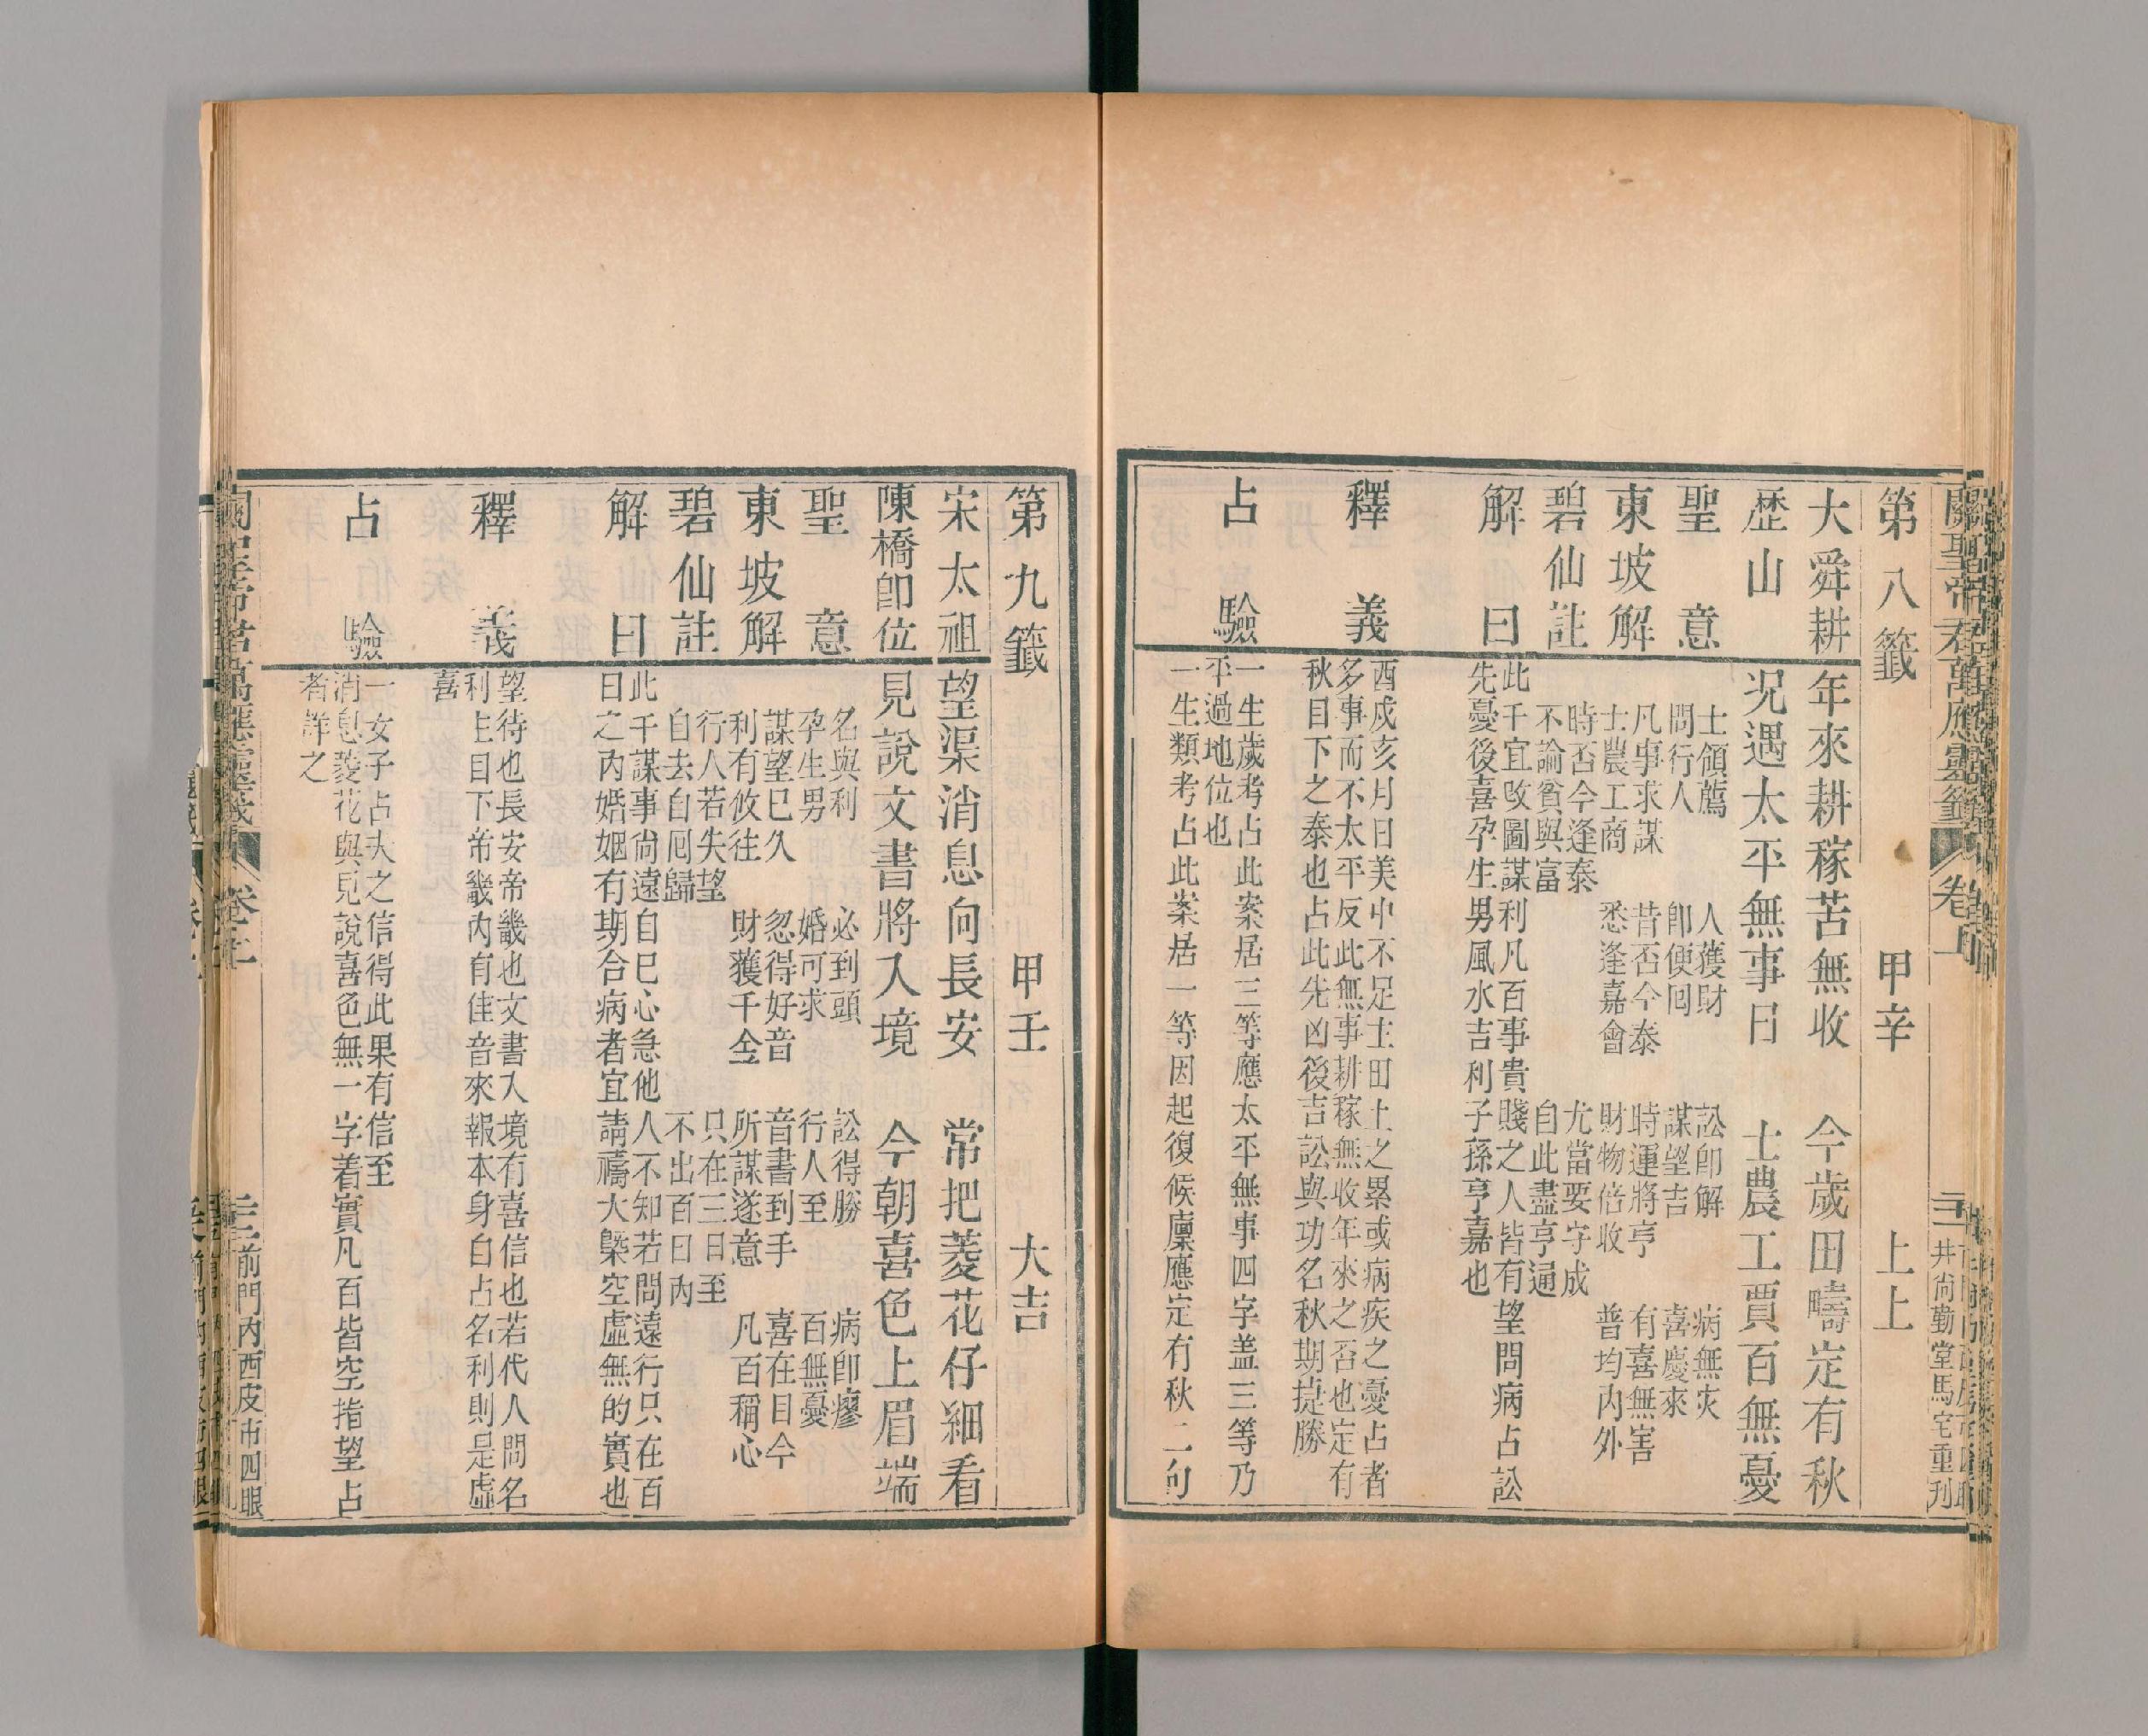 關聖帝君萬應靈籤
卷上
井尙勤堂馬宅重刊
第八籤　甲辛　上上
大舜耕　年來耕稼苦無收　今歲田疇定有秋
歷山　況遇太平無事日　士農工賈百無憂
聖意　士領薦　人獲財　訟卽解　病無灾
問行人　卽便囘　謀望吉　喜慶來
東坡解　凡事求謀　昔否今泰　時運將亨　有喜無害
士農工商　悉逢嘉會　財物倍收　普均內外
碧仙註　時否今逢泰　尤當要字成
不論貧與富　自此盡亨通
解曰　此千宜改圖謀利凡百事貴賤之人皆有望問病占訟
先憂後喜孕生男風水吉利子孫亨嘉也
釋義　酉戍亥月日美中不足土田土之累或病疾之憂占者
多事而不太平反此無事耕稼無收年來之否也定有
秋目下之泰也占此先凶後吉訟與功名秋期㨗勝
占驗　一生歲考占此案居三等應太平無事四字盖三等乃
平過地位也
一生類考占此案居一等因起復候廩應定有秋二句
第九籤　甲壬　大吉
宋太祖　望渠消息向長安　常把菱花仔細看
陳橋卽位　見說文書將入境　今朝喜色上眉端
聖意　名與利　必到頭　訟得勝　病卽瘳
孕生男　婚可求　行人至　百無憂
東坡解　謀望已久　忽得好音　音書到手　喜在目今
利有攸往　財獲千金　所謀遂意　凡百稱心
碧仙註　行人若失望　只在三日至
自去自囘歸　不出百日內
解曰　此千謀事尙遠自巳心急他人不知若問遠行只在百
日之內婚姻有期合病者宜請禱大槩空虛無的實也
釋義　望待也長安帝畿也文書入境有喜信也若代人問名
利主目下帝畿內有佳音來報本身自占名利則是虛
喜
占驗　一女子占夫之信得此果有信至
消息菱花與見說喜色無一字着實凡百皆空指望占
者詳之
前門內西皮市四眼